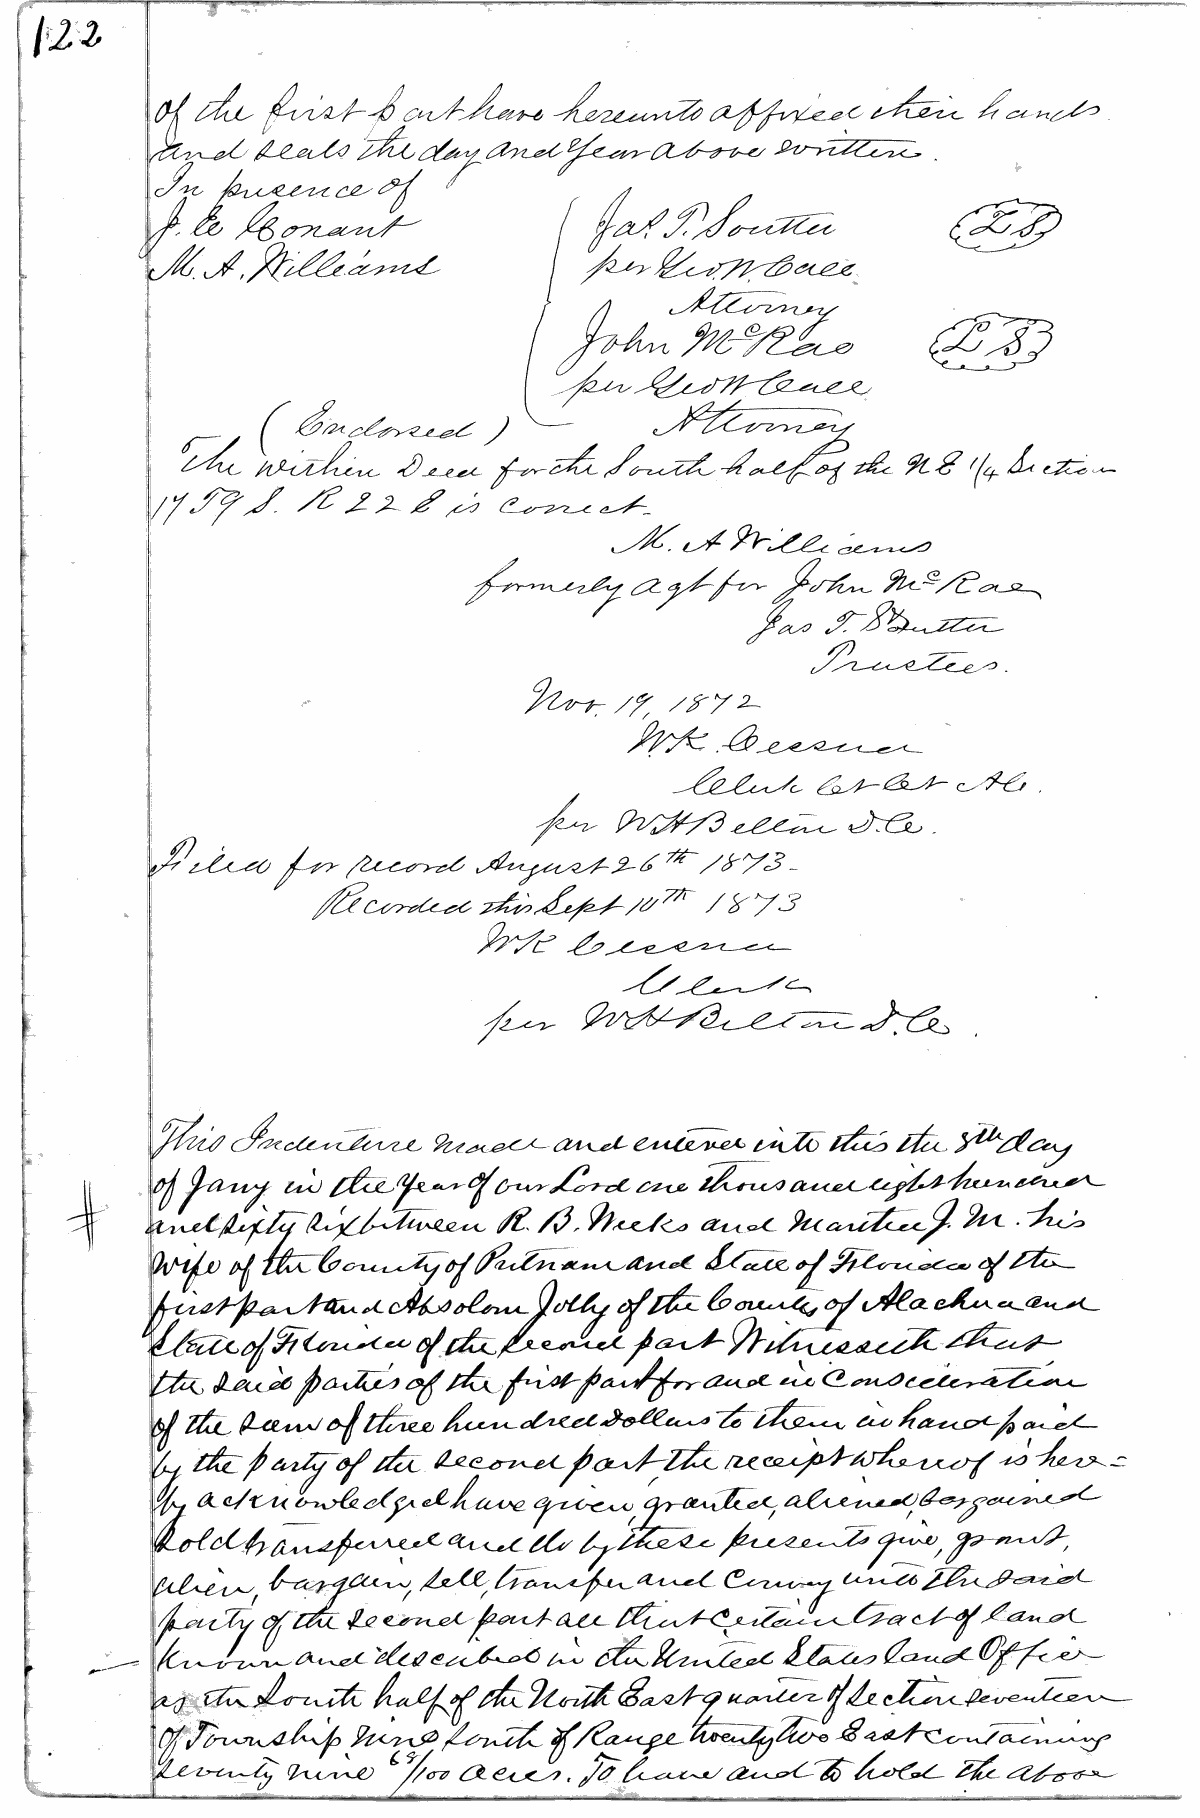 122
of the first part have hereunto affixed their hands
and seals the day and Year above written.
In presence of
J. C Conant
M. A. Williams
Jas. T. Soutter L S
per Geo. W. Call
Attorney
John McRae L S
per Geo W Call
Attorney
(Endorsed)
The within Deed for the South half of the N E 1/4 Section
17 T 9 S. R 22 E is correct.
M. A Williams
formerly agt for John McRae
Jas T. Soutter
Trustees.
Nov. 19, 1872
W.K. Cessna
Clerk Ct Ct A Co.
per W H Belton D. C.
Filed for record August 26th 1873-
Recorded this Sept 10th 1873
W K Cessna
Clerk
per W H Belton D. C.
This Indenture made and entered into this the 8th day
of Jany in the Year of our Lord one thousand eight hundred
# and sixty six between R. B. Weeks and Martha J. M. his
Wife of the County of Putnam and State of Florida of the
first part and Absolom Jolly of the County of Alachua and
State of Florida of the second part Witnesseth that
the said parties of the first part for and in Consideration
of the sum of three hundred Dollars to them in hand paid
by the party of the second part, the receipt whereof is here=
by acknowledged have given, granted, aliened, bargained
sold transferred and do by these presents give, grant,
alien, bargain, sell, transfer and Convey unto the said
party of the second part all that Certain tract of land
known and described in the United States land Office
as the South half of the North East quarter of Section seventeen
of Township nine South of Range twenty two East containing
seventy nine 68/100 acres. To have and to hold the above